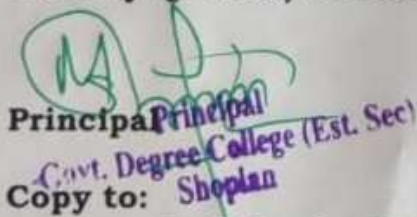 Principal Principal
Govt. Degree College (Est. Sec)
Copy to: Shopian